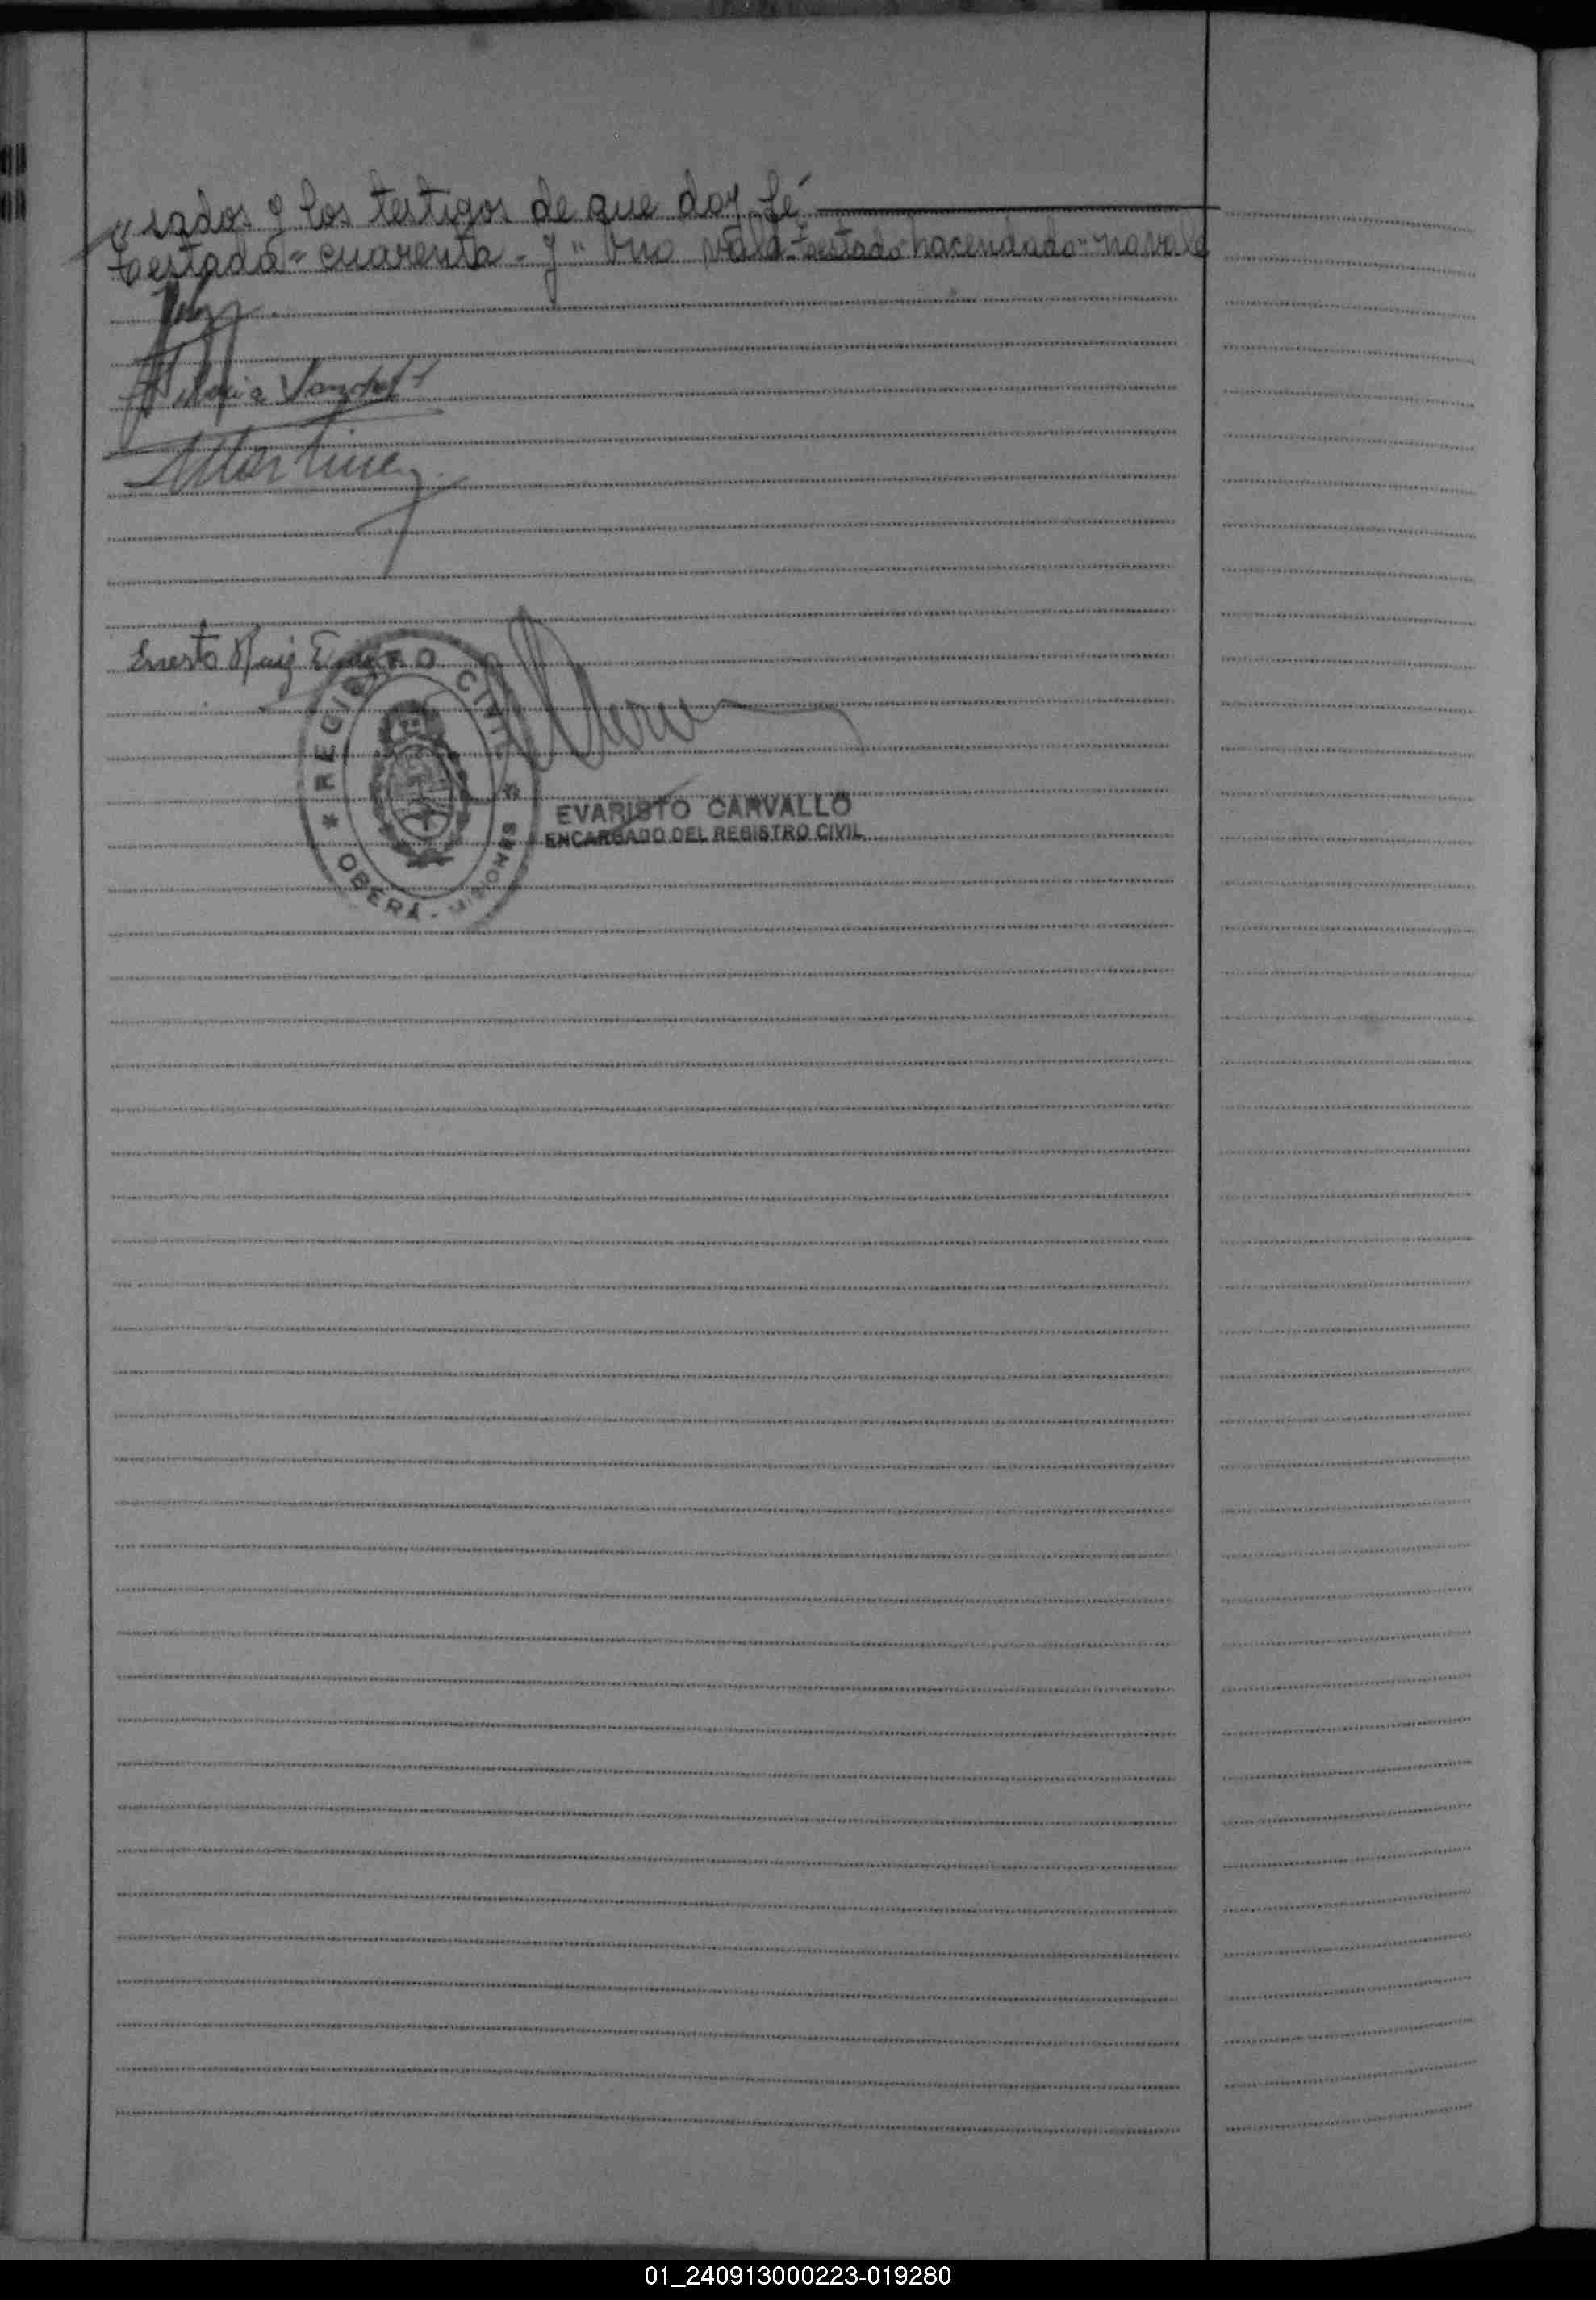 " rados y los testigos de que doy fé
Testado "cuarenta - y" Uno vale - Testado "hacendado" no vale
Martinez
Ernesto Ruiz
REGISTRO CIVIL
* OBERÁ - MISIONES *
EVARISTO CARVALLO
ENCARGADO DEL REGISTRO CIVIL
01_240913000223-019280